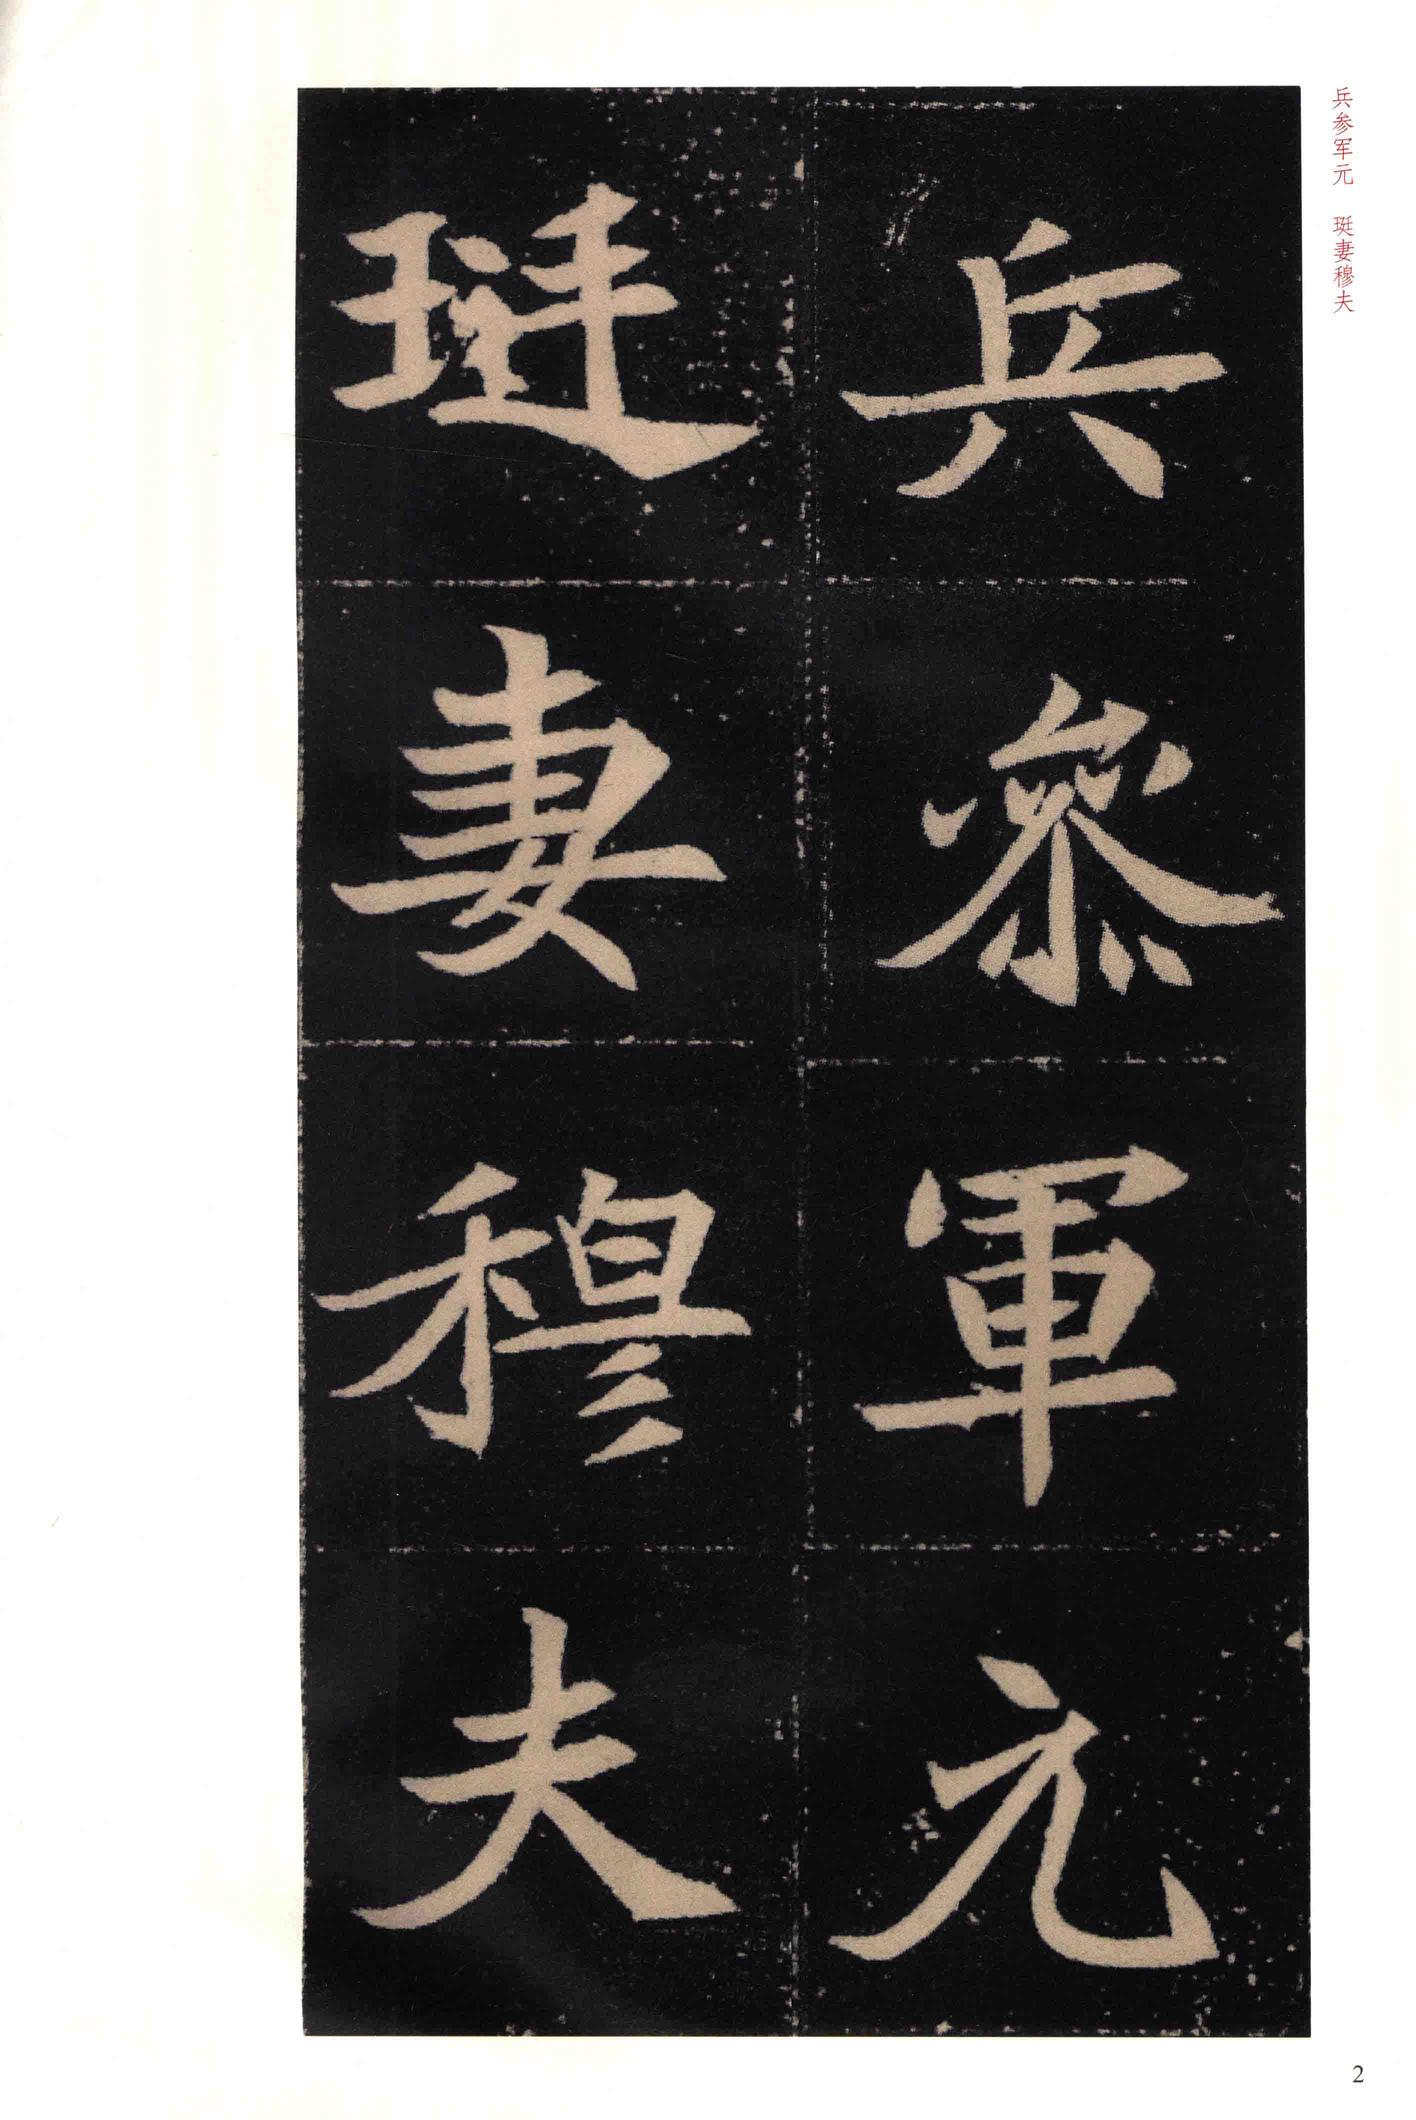 兵參軍元
珽妻穆夫
兵参军元 珽妻穆夫
2